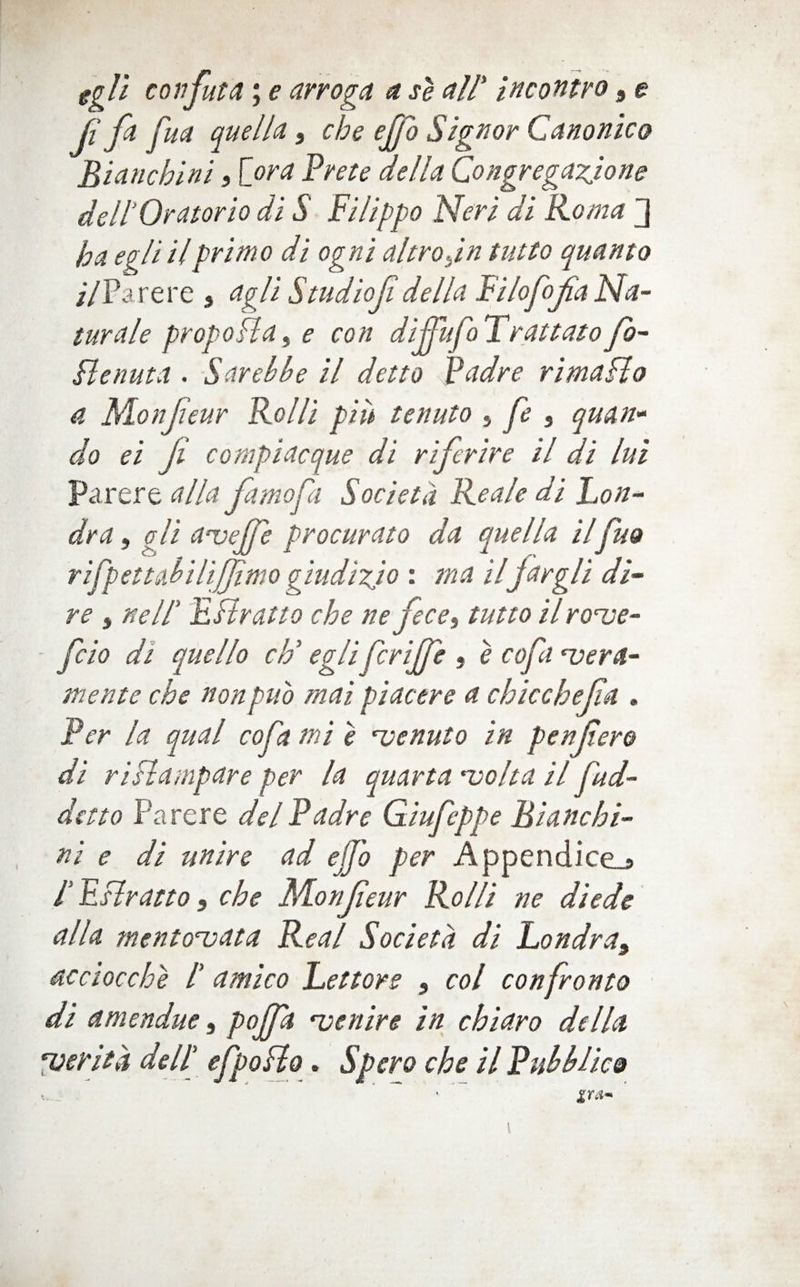 egli confuta ; e arroga a sè all' incontro , e
ſi fa ſua quella , che eſſo Signor Canonico
Bianchini , [ora Prete della Congregazione
dell'Oratorio di S Filippo Neri di Roma ]
ha egli il primo di ogni altro,in tutto quanto
il Parere , agli Studioſi della Filoſofia Na-
turale propoſta , e con diffuſo Trattato ſo-
ſtenuta . Sarebbe il detto Padre rimaſto
a Monſieur Rolli più tenuto , ſe , quan-
do ei ſi compiacque di riferire il di lui
Parere alla famoſa Società Reale di Lon-
dra , gli aveſſe procurato da quella il ſuo
riſpettabiliſſimo giudizio : ma il fargli di-
re , nell' Eſtratto che ne fece, tutto il rove-
ſcio di quello ch' egli ſcriſſe , è coſa vera-
mente che non può mai piacere a chiccheſia .
Per la qual coſa mi è venuto in penſiero
di riſtampare per la quarta volta il ſud-
detto Parere del Padre Giuſeppe Bianchi-
ni e di unire ad eſſo per Appendice,
l'Eſtratto , che Monſieur Rolli ne diede
alla mentovata Real Società di Londra,
acciocchè l' amico Lettore , col confronto
di amendue , poſſa venire in chiaro della
verità dell' eſpoſto . Spero che il Pubblico
gra-